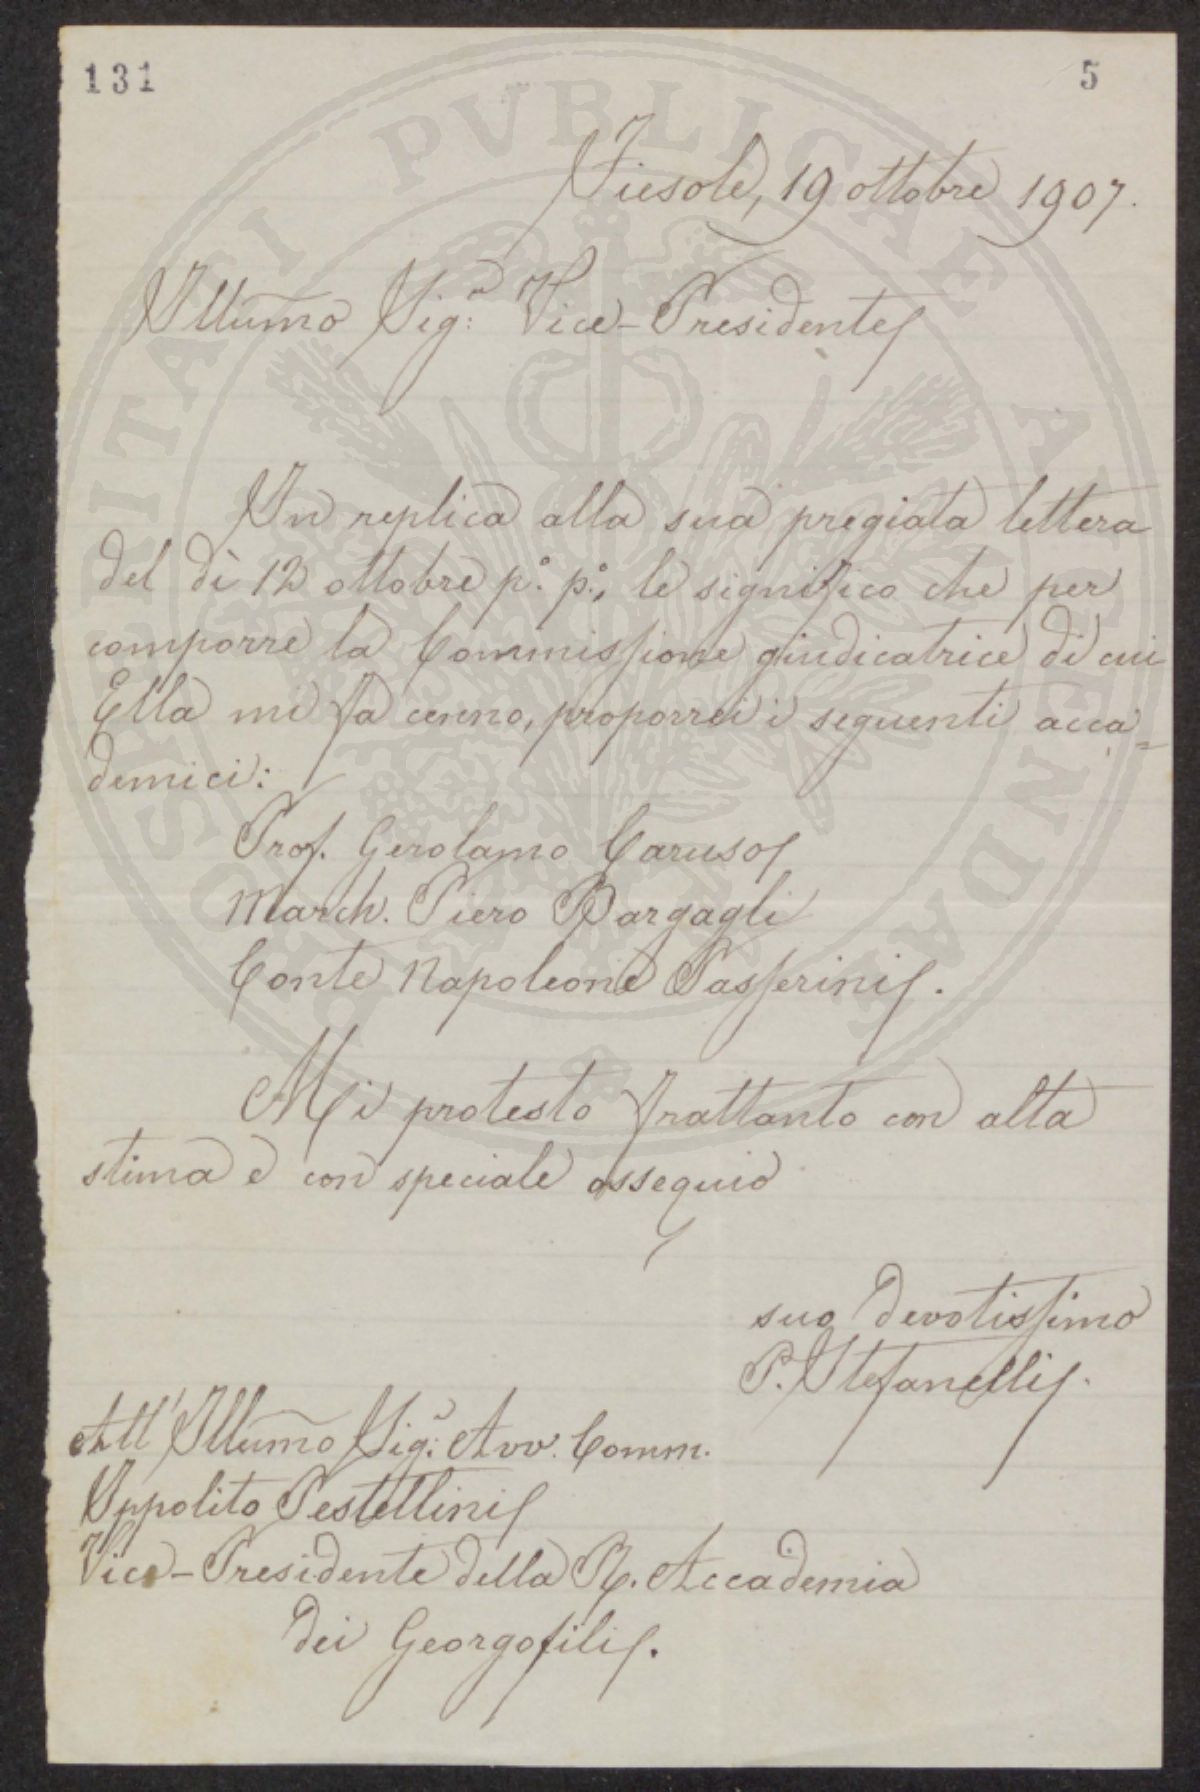 131
5
Fiesole, 19 ottobre 1907.
Illumo Sigr: Vice-Presidente
In replica alla sua pregiata lettera
del dì 12 ottobre p.º p.º, le significo che per
comporre la Commissione giudicatrice di cui
Ella mi fa cenno, proporrei i seguenti acca=
demici:
Prof. Gerolamo Caruso
March. Piero Bargagli
Conte Napoleone Passerini.
Mi protesto frattanto con alta
stima e con speciale ossequio
suo devotissimo
P. Stefanelli.
All'Illumo Sigr: Avv. Comm.
Ippolito Pestellini
Vice-Presidente della R. Accademia
dei Georgofili.
PVBLICAE
PROSPERITATI
AVGENDAE